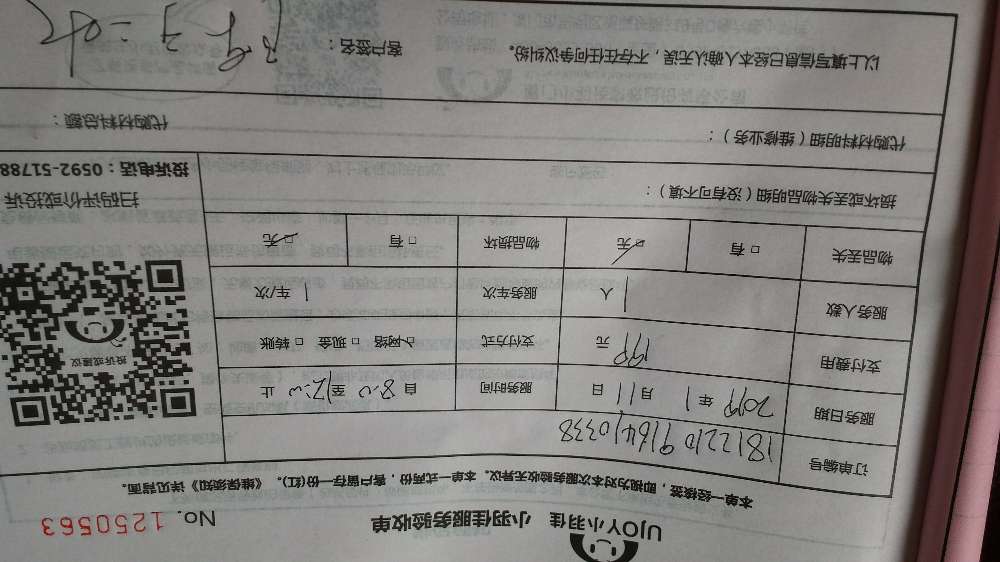 UJOY小羽佳 小羽佳服务验收单
No. 1250563
本单一经接签，即视为对本次服务验收无异议。本单一式两份，客户留存一份(红)。《维保须知》详见背面。
订单编号 181221091640338
服务日期 2019 年 1 月 11 日 服务时间 自 8:00 至 12:00 止
支付费用 199 元 支付方式 □网络 □现金 □转账
服务人数 1 人 服务车次 1 车/次
物品丢失 □有 □无 物品损坏 □有 □无
损坏或丢失物品明细（没有可不填）：
代购材料明细（维修业务）：
代购材料总额：
以上填写信息已经本人确认无误，不存在任何争议纠纷。
客户签名：
投诉或建议
扫码评价或投诉
投诉电话：0592-51788